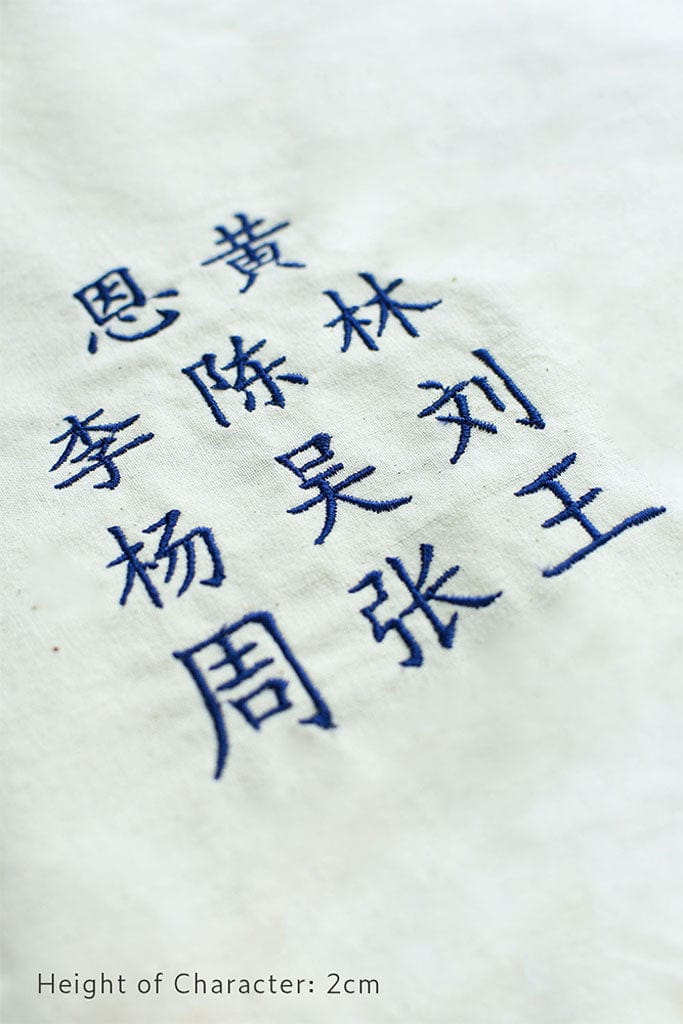 恩黄
李陈林
杨吴刘
周张王
Height of Character: 2cm